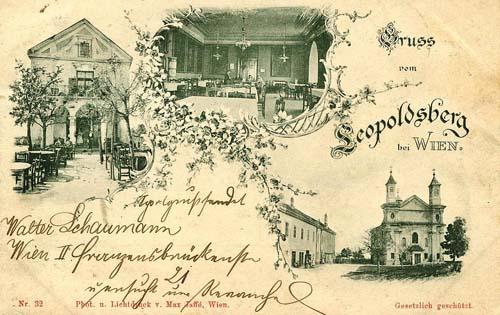 Gruss
vom
Leopoldsberg
bei WIEN.
Walter Schaumann
Wien II Franzensbrückenstr
21
ersucht um Revanche
Nr. 32 Phot. u. Lichtdruck v. Max Jaffé, Wien. Gesetzlich geschützt.